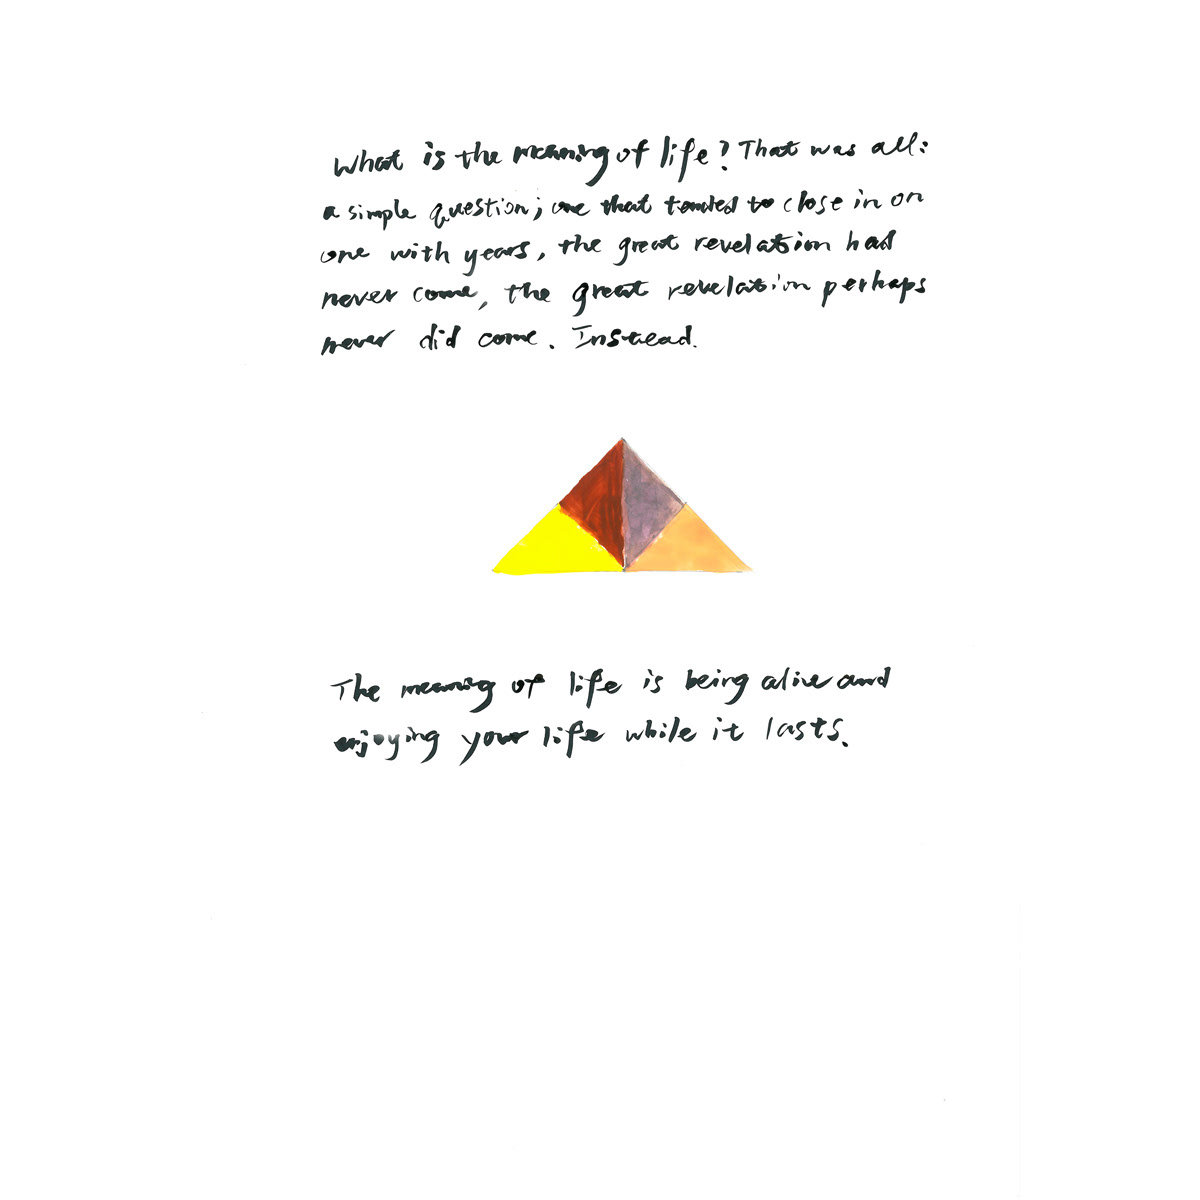 What is the meaning of life? That was all:
a simple question; one that tended to close in on
one with years, the great revelation had
never come, the great revelation perhaps
never did come. Instead.
The meaning of life is being alive and
enjoying your life while it lasts.